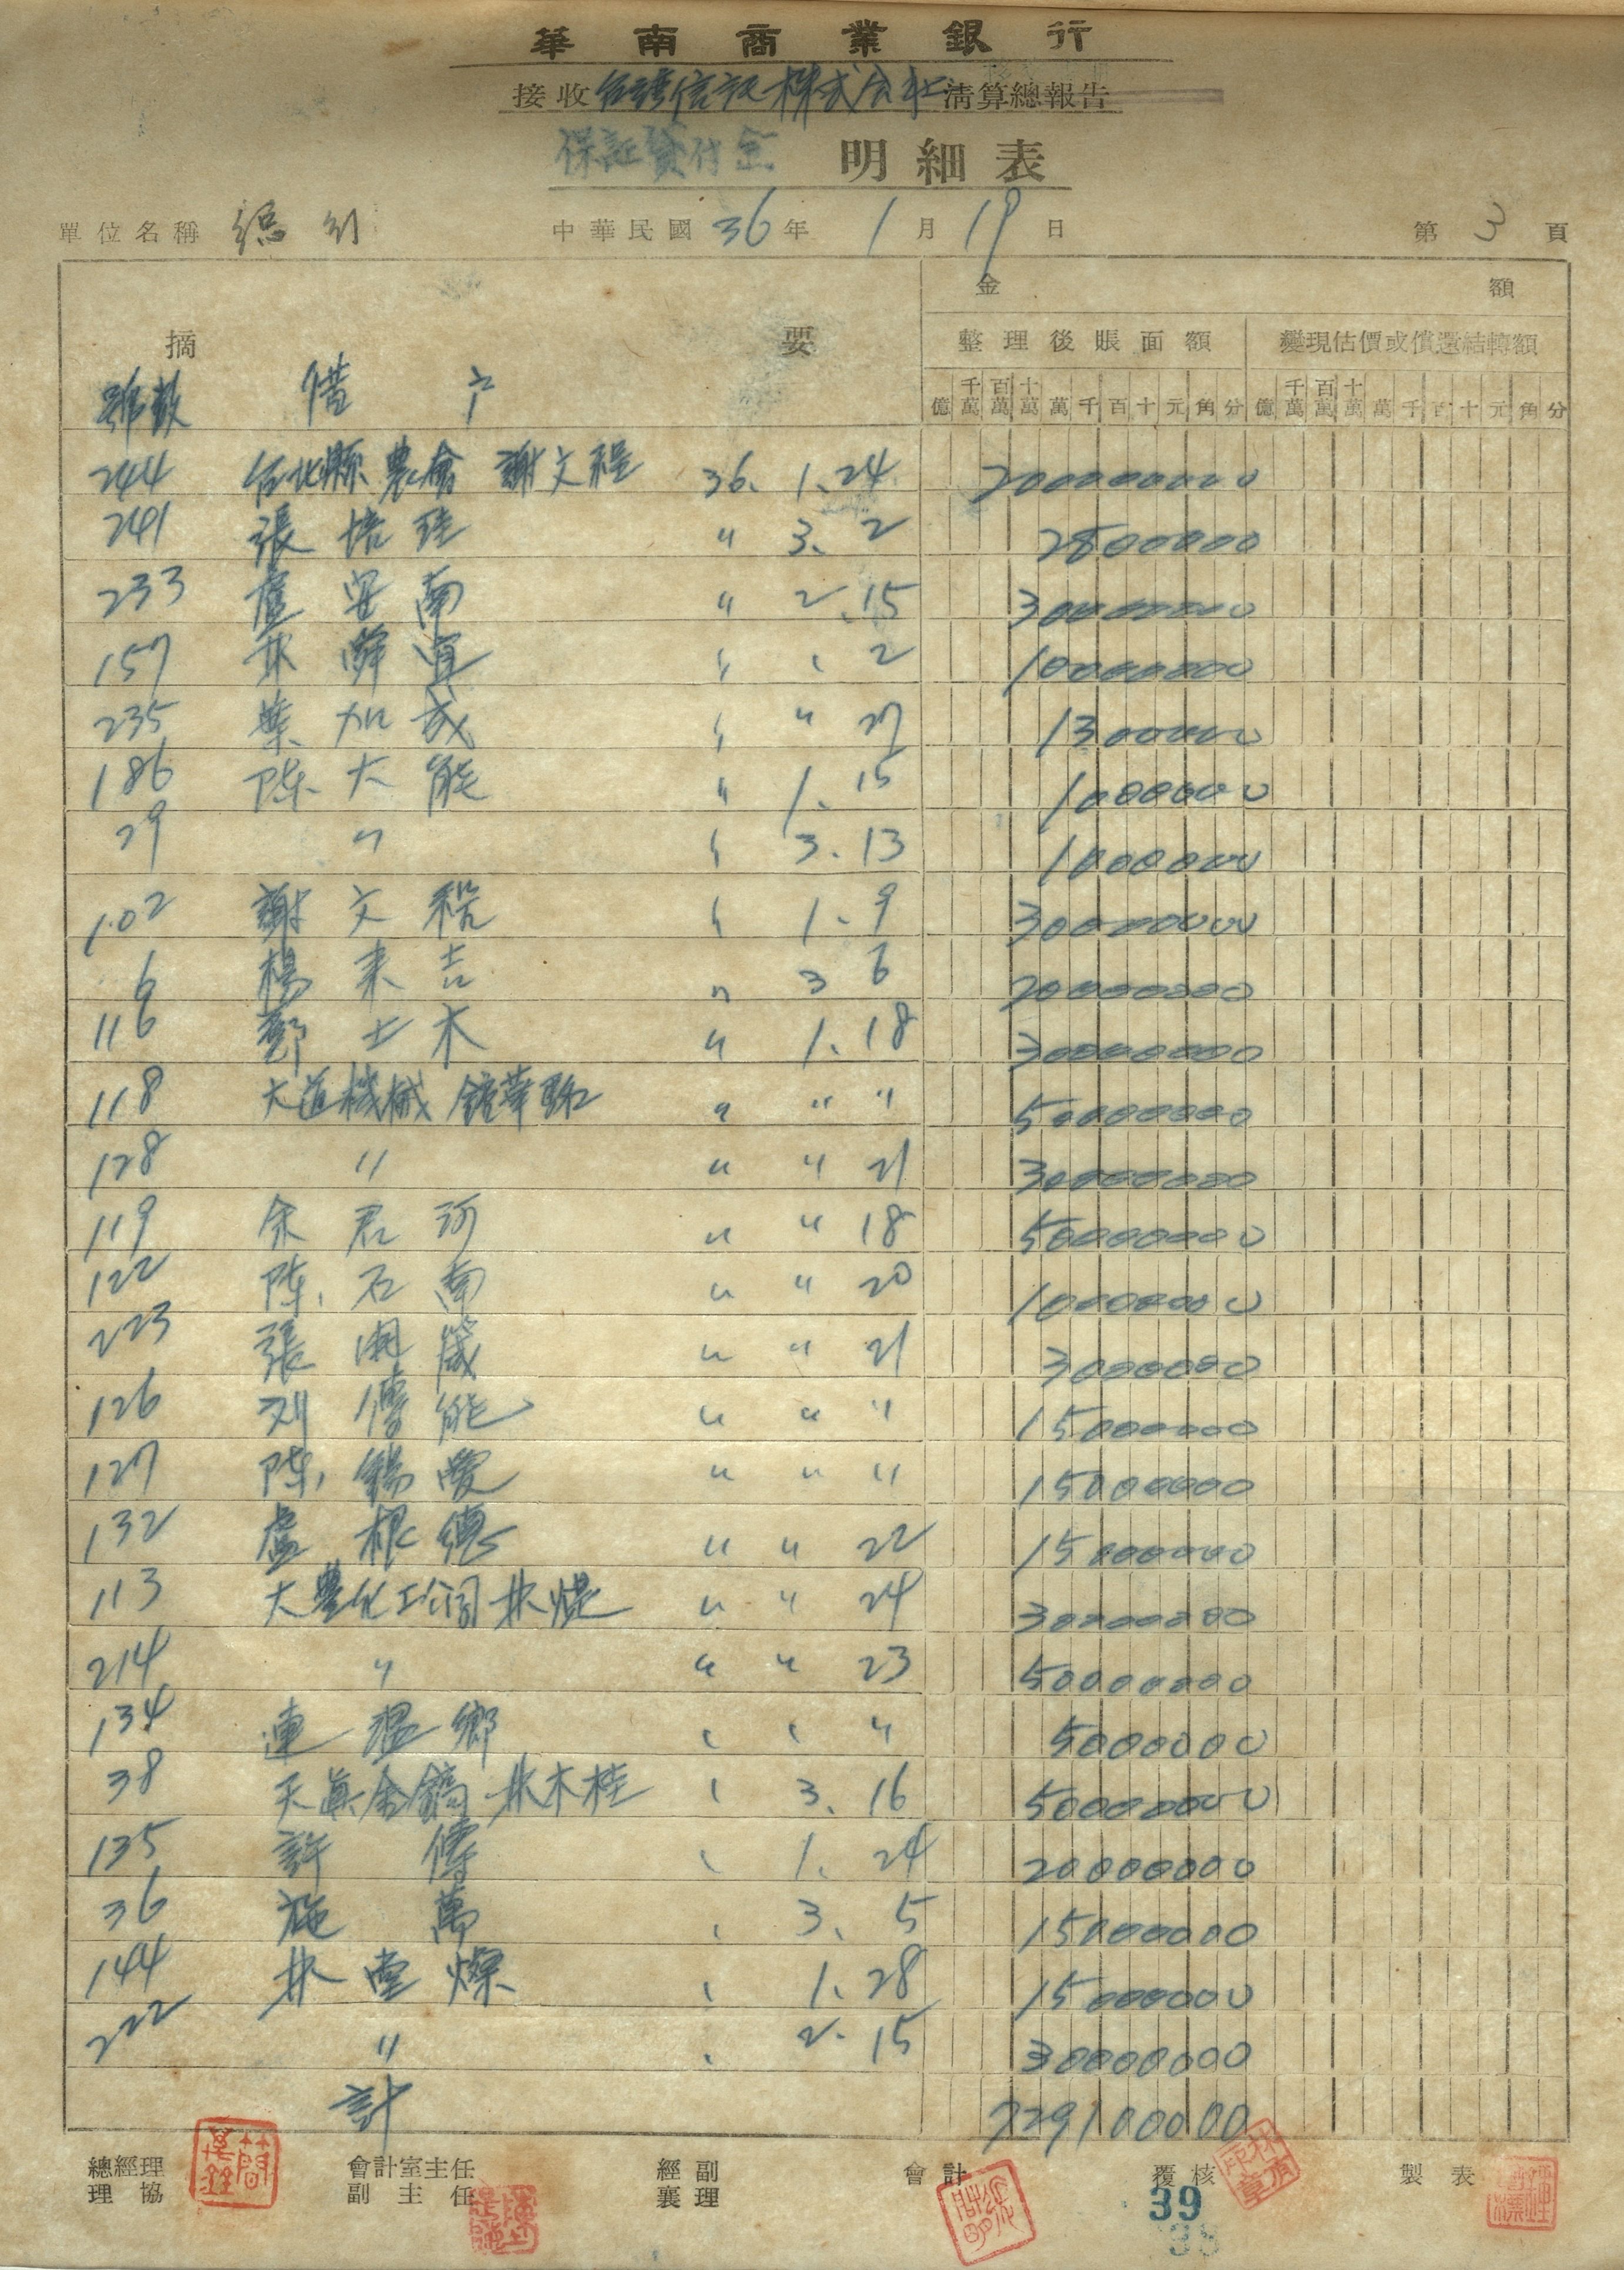 華南商業銀行
接收台灣信託株式会社清算總報告
保証貸付金 明細表
單位名稱 總 中華民國36年1月19日 第3頁
金 額
摘 要 整理後賬面額 變現估價或償還結轉額
億 千萬 百萬 十萬 萬 千 百 十 元 角 分 億 千萬 百萬 十萬 萬 千 百 十 元 角 分
號數 借户
244 台北縣農會 謝文程 36. 1. 24 200000000
241 張培 " 3. 2 2800000
233 盧安南 " 2. 15 30000000
157 林 " 2 10000000
235 葉加成 " " 27 1300000
186 陈大能 " 1. 15 1000000
29 " " 3. 13 1000000
102 謝文程 " 1. 9 30000000
6 楊来吉 " 3 6 20000000
116 鄭士木 " 1. 18 30000000
118 大道機械 鍾華 " " " 50000000
128 " " " 21 30000000
119 余君河 " " 18 50000000
122 陈石南 " " 20 10000000
223 張 " " 21 3000000
126 刘傳能 " " " 15000000
127 陈錫慶 " " " 15000000
132 盧根德 " " 22 15000000
113 大豊化工公司 林煶 " " 24 30000000
214 " " " 23 50000000
134 連溫鄉 " " " 5000000
38 天真金鎬 林木桂 " 3. 16 50000000
135 許傳 " 1. 24 20000000
36 施萬 " 3. 5 15000000
144 林堂燦 " 1. 28 15000000
222 " " 2. 15 30000000
計 729100000
總經理 會計室主任 經副 會計 覆核 製表
理協 副主任 襄理
39